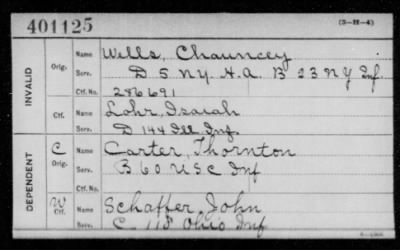 401125
(3-H-4)
INVALID
Orig. Name Wells, Chauncey
Serv. D 5 N.Y. H.A. B 23 N.Y. Inf.
Ctf. No. 286691
Ctf. Name Lohr, Isaiah
Serv. D 144 Ill Inf.
DEPENDENT
C Orig. Name Carter, Thornton
Serv. B 60 U S C Inf
Ctf. No.
W Ctf. Name Schaffer, John
Serv. C 118 Ohio Inf